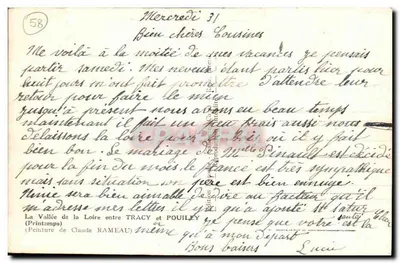 58
Mercredi 31
Bien chères Cousines
Me voilà à la moitié de mes vacances je pensais
partir samedi. Mes neveux étant partis hier pour
huit jours m'ont fait promettre d'attendre leur
retour pour faire le mien
Jusqu'à présent nous avons eu beau temps
maintenant il fait un peu frais aussi nous
délaissons la loire pour où il y fait
bien bon. Le mariage de Melle Pinault est décidé
pour la fin du mois le fiancé est très sympathique
mais sans situation son père est bien ennuyé
Ninie sera bien aimable de dire au facteur qu'il
m'adresse mes lettres il n'y a qu'à ajouter St Satur Cher
je pense que votre santé est la
même qu'à mon départ
Bons baisers
Lucie
La Vallée de la Loire entre TRACY et POUILLY
(Printemps)
(Peinture de Claude RAMEAU)